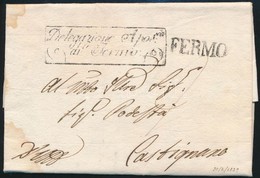 Delegazione Apos.ca
di Fermo
FERMO
Al Molto Illre Sig.
Sig. Podestà
Castignano